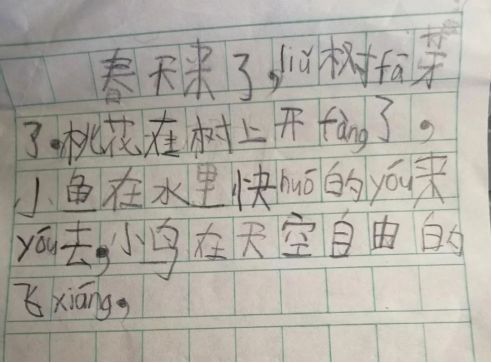 春天来了,liǔ树fā芽
了。桃花在树上开fàng了，
小鱼在水里快huó的yóu来
yóu去，小鸟在天空自由的
飞xiáng。